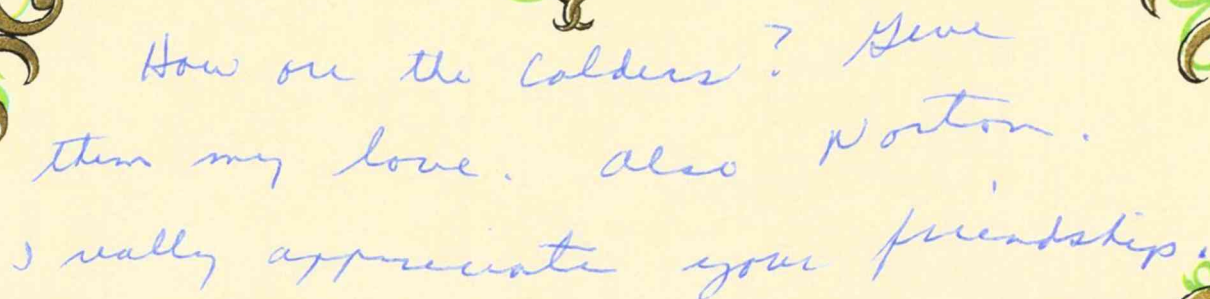 How are the Calders? Give
them my love. Also Norton.
I really appreciate your friendship.